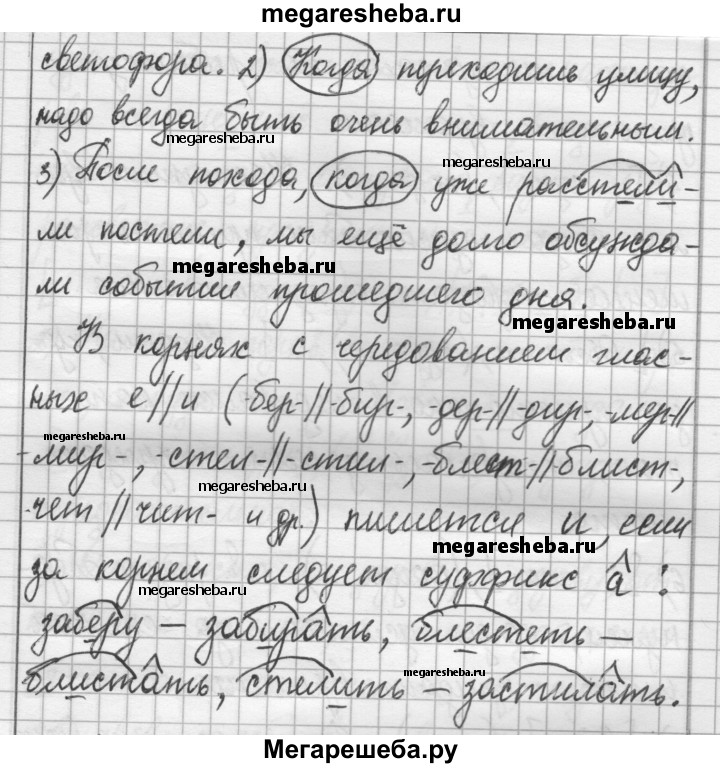 megaresheba.ru
светофора. 2) Когда переходишь улицу,
надо всегда быть очень внимательным.
megaresheba.ru
megaresheba.ru
3) После похода, когда уже расстели-
ли постели, мы ещё долго обсужда-
megaresheba.ru
ли события прошедшего дня.
megaresheba.ru
В корнях с чередованием глас-
ных е//и (-бер-//-бир-, -дер-//-дир-, -мер-//
megaresheba.ru
-мир-, -стел-//-стил-, -блест-//-блист-,
megaresheba.ru
-чет//чит- и др.) пишется и, если
megaresheba.ru
за корнем следует суффикс а:
megaresheba.ru
заберу – забирать, блестеть –
megaresheba.ru
блистать, стелить – застилать.
Мегарешеба.ру